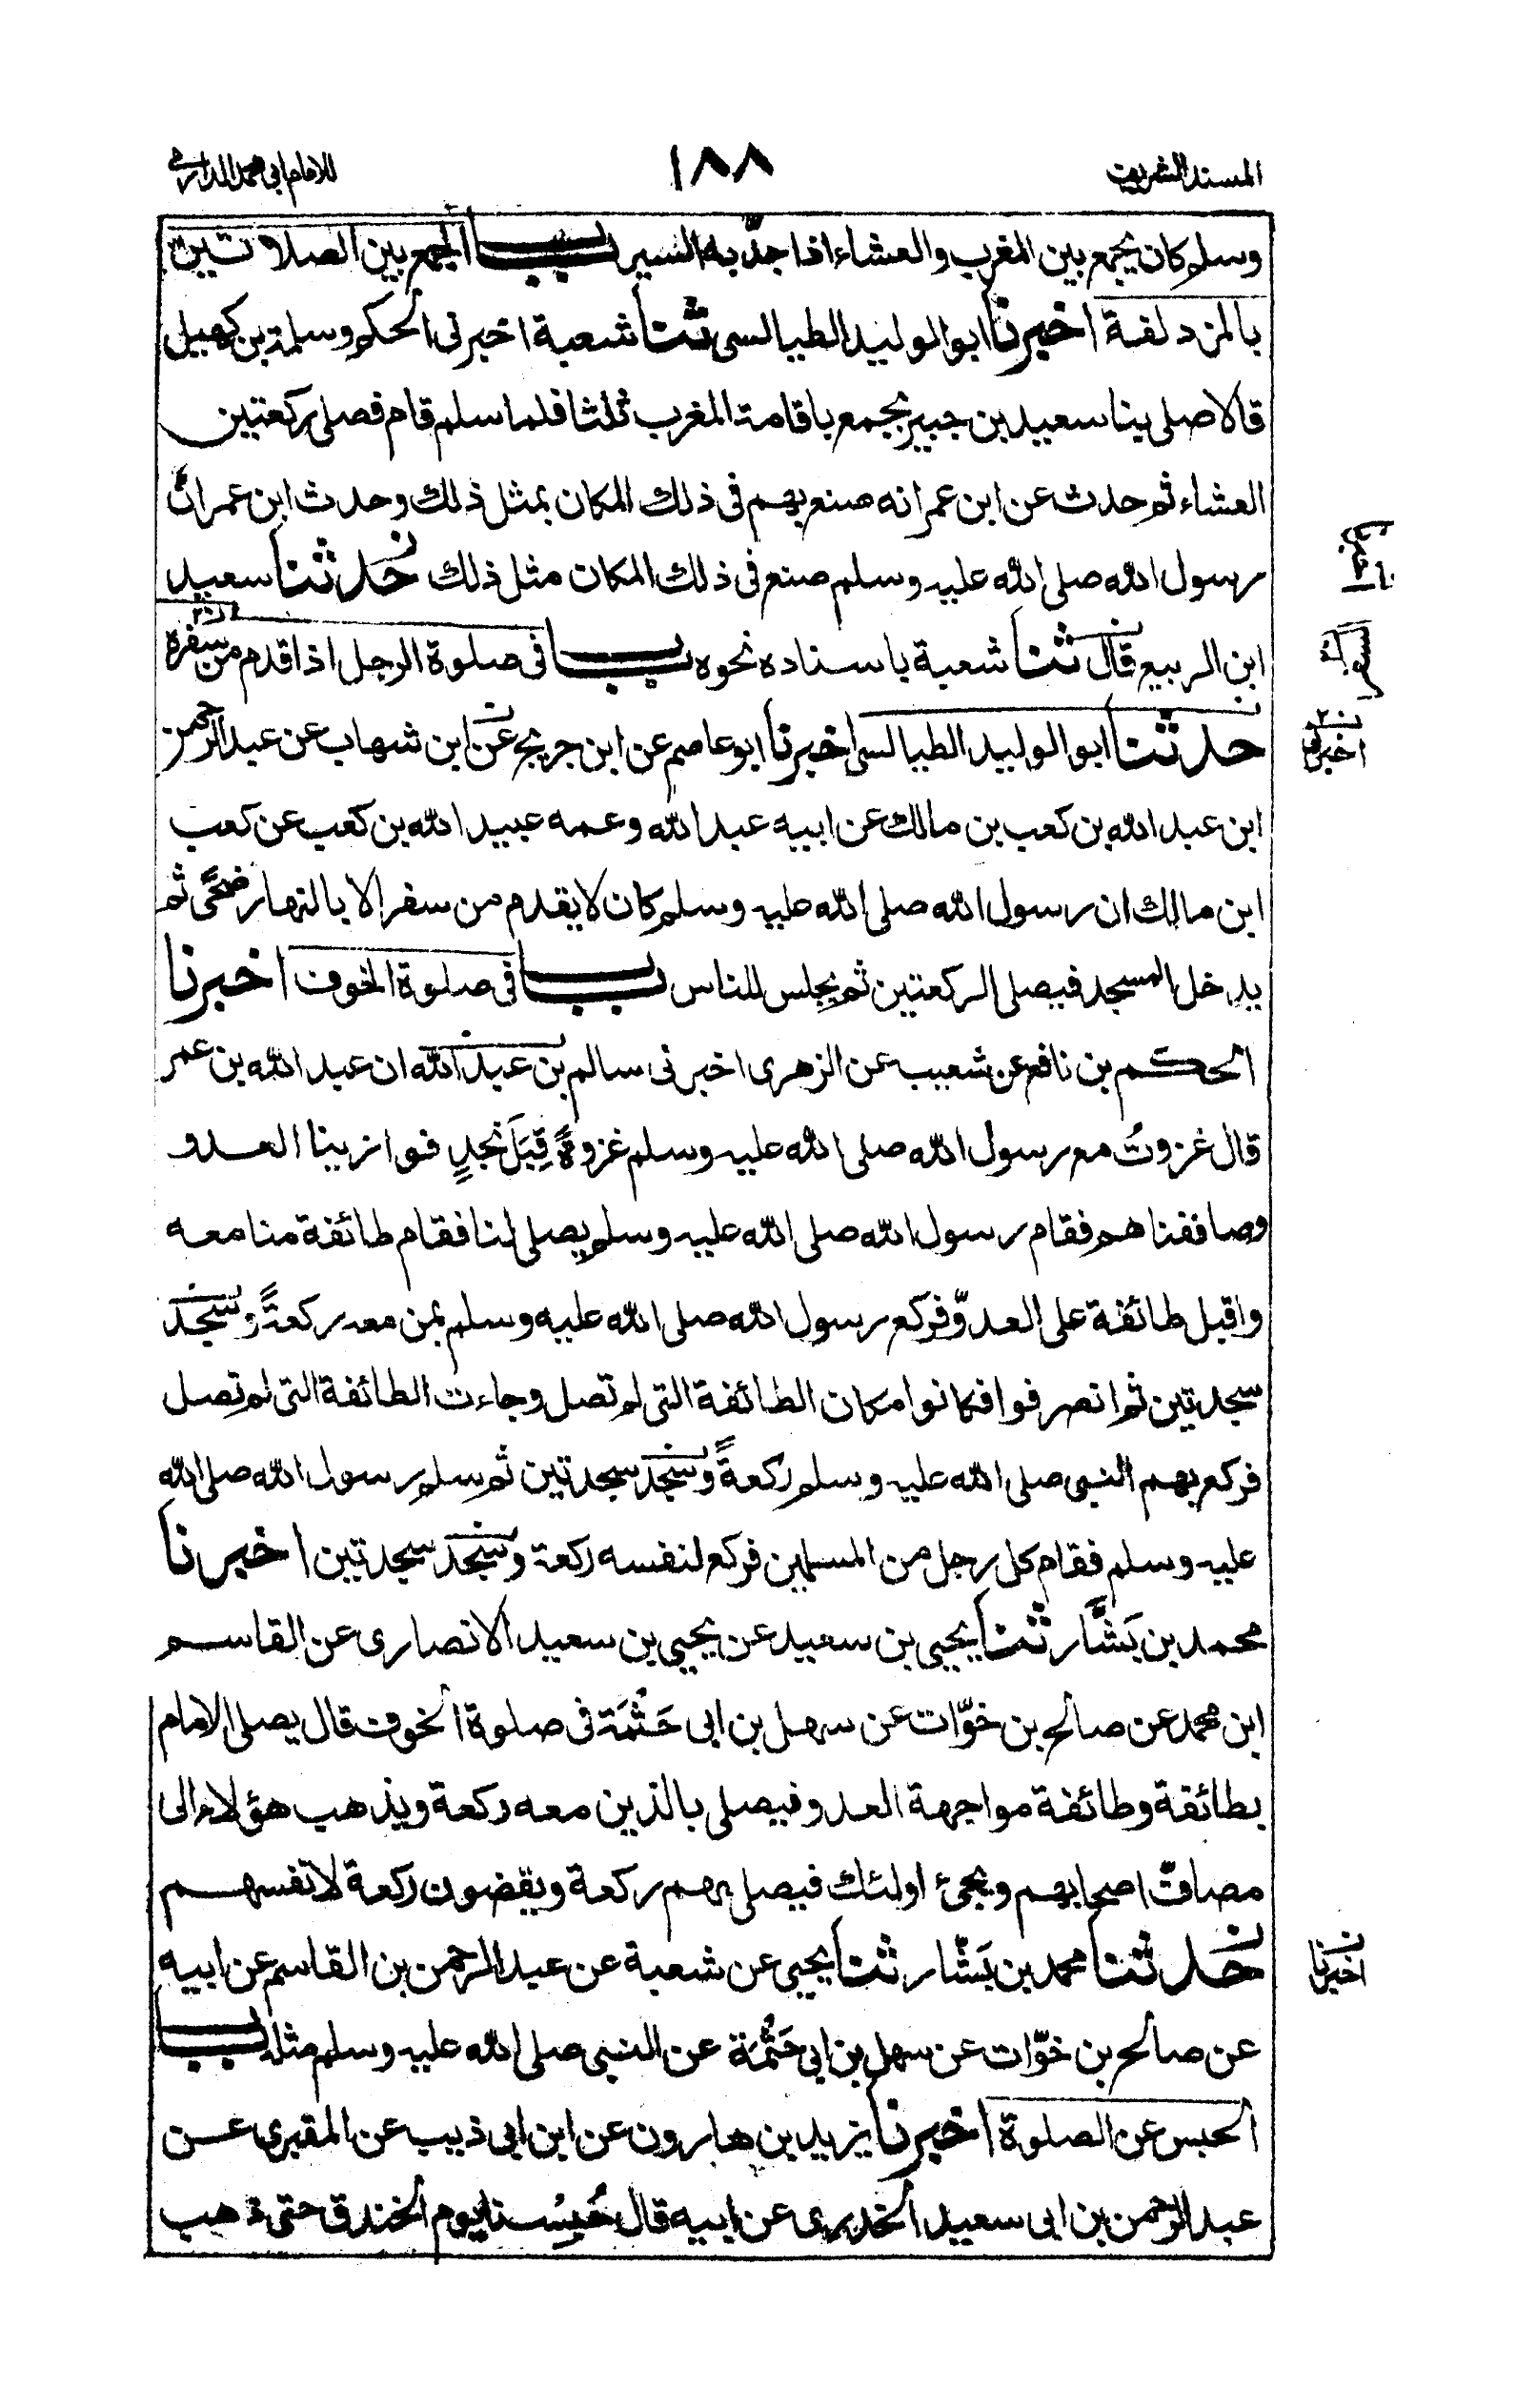 المسند الشريف ١٨٨ للامام ابى محمد الدارمى
وسلم كان يجمع بين المغرب والعشاء اذا جدّ به السير باب الجمع بين الصلاتين
بالمزدلفة اخبرنا ابو الوليد الطيالسى ثنا شعبة اخبرنى الحكم وسلمة بن كهيل
قالا صلى بنا سعيد بن جبير بجمع باقامة المغرب ثلثا فلما سلم قام فصلى ركعتين
العشاء ثم حدث عن ابن عمر انه صنع بهم فى ذلك المكان بمثل ذلك وحدث ابن عمر انّ
رسول الله صلى الله عليه وسلم صنع فى ذلك المكان مثل ذلك حدثنا سعيد
ابن الربيع قال ثنا شعبة باسناده نحوه باب فى صلوة الرجل اذا قدم من سفره
حدثنا ابو الوليد الطيالسى اخبرنا ابو عاصم عن ابن جريج عن ابن شهاب عن عبد الرحمن
اخبرنا
ابن عبد الله بن كعب بن مالك عن ابيه عبد الله وعمه عبيد الله بن كعب عن كعب
ابن مالك ان رسول الله صلى الله عليه وسلم كان لا يقدم من سفر الا بالنهار ضحًى ثم
يدخل المسجد فيصلى الركعتين ثم يجلس للناس باب فى صلوة الخوف اخبرنا
الحكم بن نافع عن شعيب عن الزهرى اخبرنى سالم بن عبد الله ان عبد الله بن عمر
قال غزوتُ مع رسول الله صلى الله عليه وسلم غزوةً قِبَلَ نجدٍ فوازينا العدو
وصاففناهم فقام رسول الله صلى الله عليه وسلم يصلى لنا فقام طائفة منا معه
واقبل طائفة على العدوّ فركع رسول الله صلى الله عليه وسلم بمن معه ركعةً وسجد
سجدتين ثم انصرفوا فكانوا مكان الطائفة التى لم تصل وجاءت الطائفة التى لم تصل
فركع بهم النبى صلى الله عليه وسلم ركعةً وسجد سجدتين ثم سلم رسول الله صلى الله
عليه وسلم فقام كل رجل من المسلمين فركع لنفسه ركعة وسجد سجدتين اخبرنا
محمد بن بَشَّار ثنا يحيى بن سعيد عن يحيى بن سعيد الانصارى عن القاسم
ابن محمد عن صالح بن خوّات عن سهل بن ابى حَثْمَة فى صلوة الخوف قال يصلى الامام
بطائفة وطائفة مواجهة العدو فيصلى بالذين معه ركعة ويذهب هؤلاء الى
مصافّ اصحابهم ويجئ اولئك فيصلى بهم ركعة ويقضون ركعة لانفسهم
حدثنا محمد بن بَشّار ثنا يحيى عن شعبة عن عبد الرحمن بن القاسم عن ابيه
اخبرنا
عن صالح بن خوّات عن سهل بن ابى حَثْمَة عن النبى صلى الله عليه وسلم مثله باب
الحبس عن الصلوة اخبرنا يزيد بن هارون عن ابن ابى ذيب عن المقبرى عن
عبد الرحمن بن ابى سعيد الخدرى عن ابيه قال حُبِسْنا يوم الخندق حتى ذهب